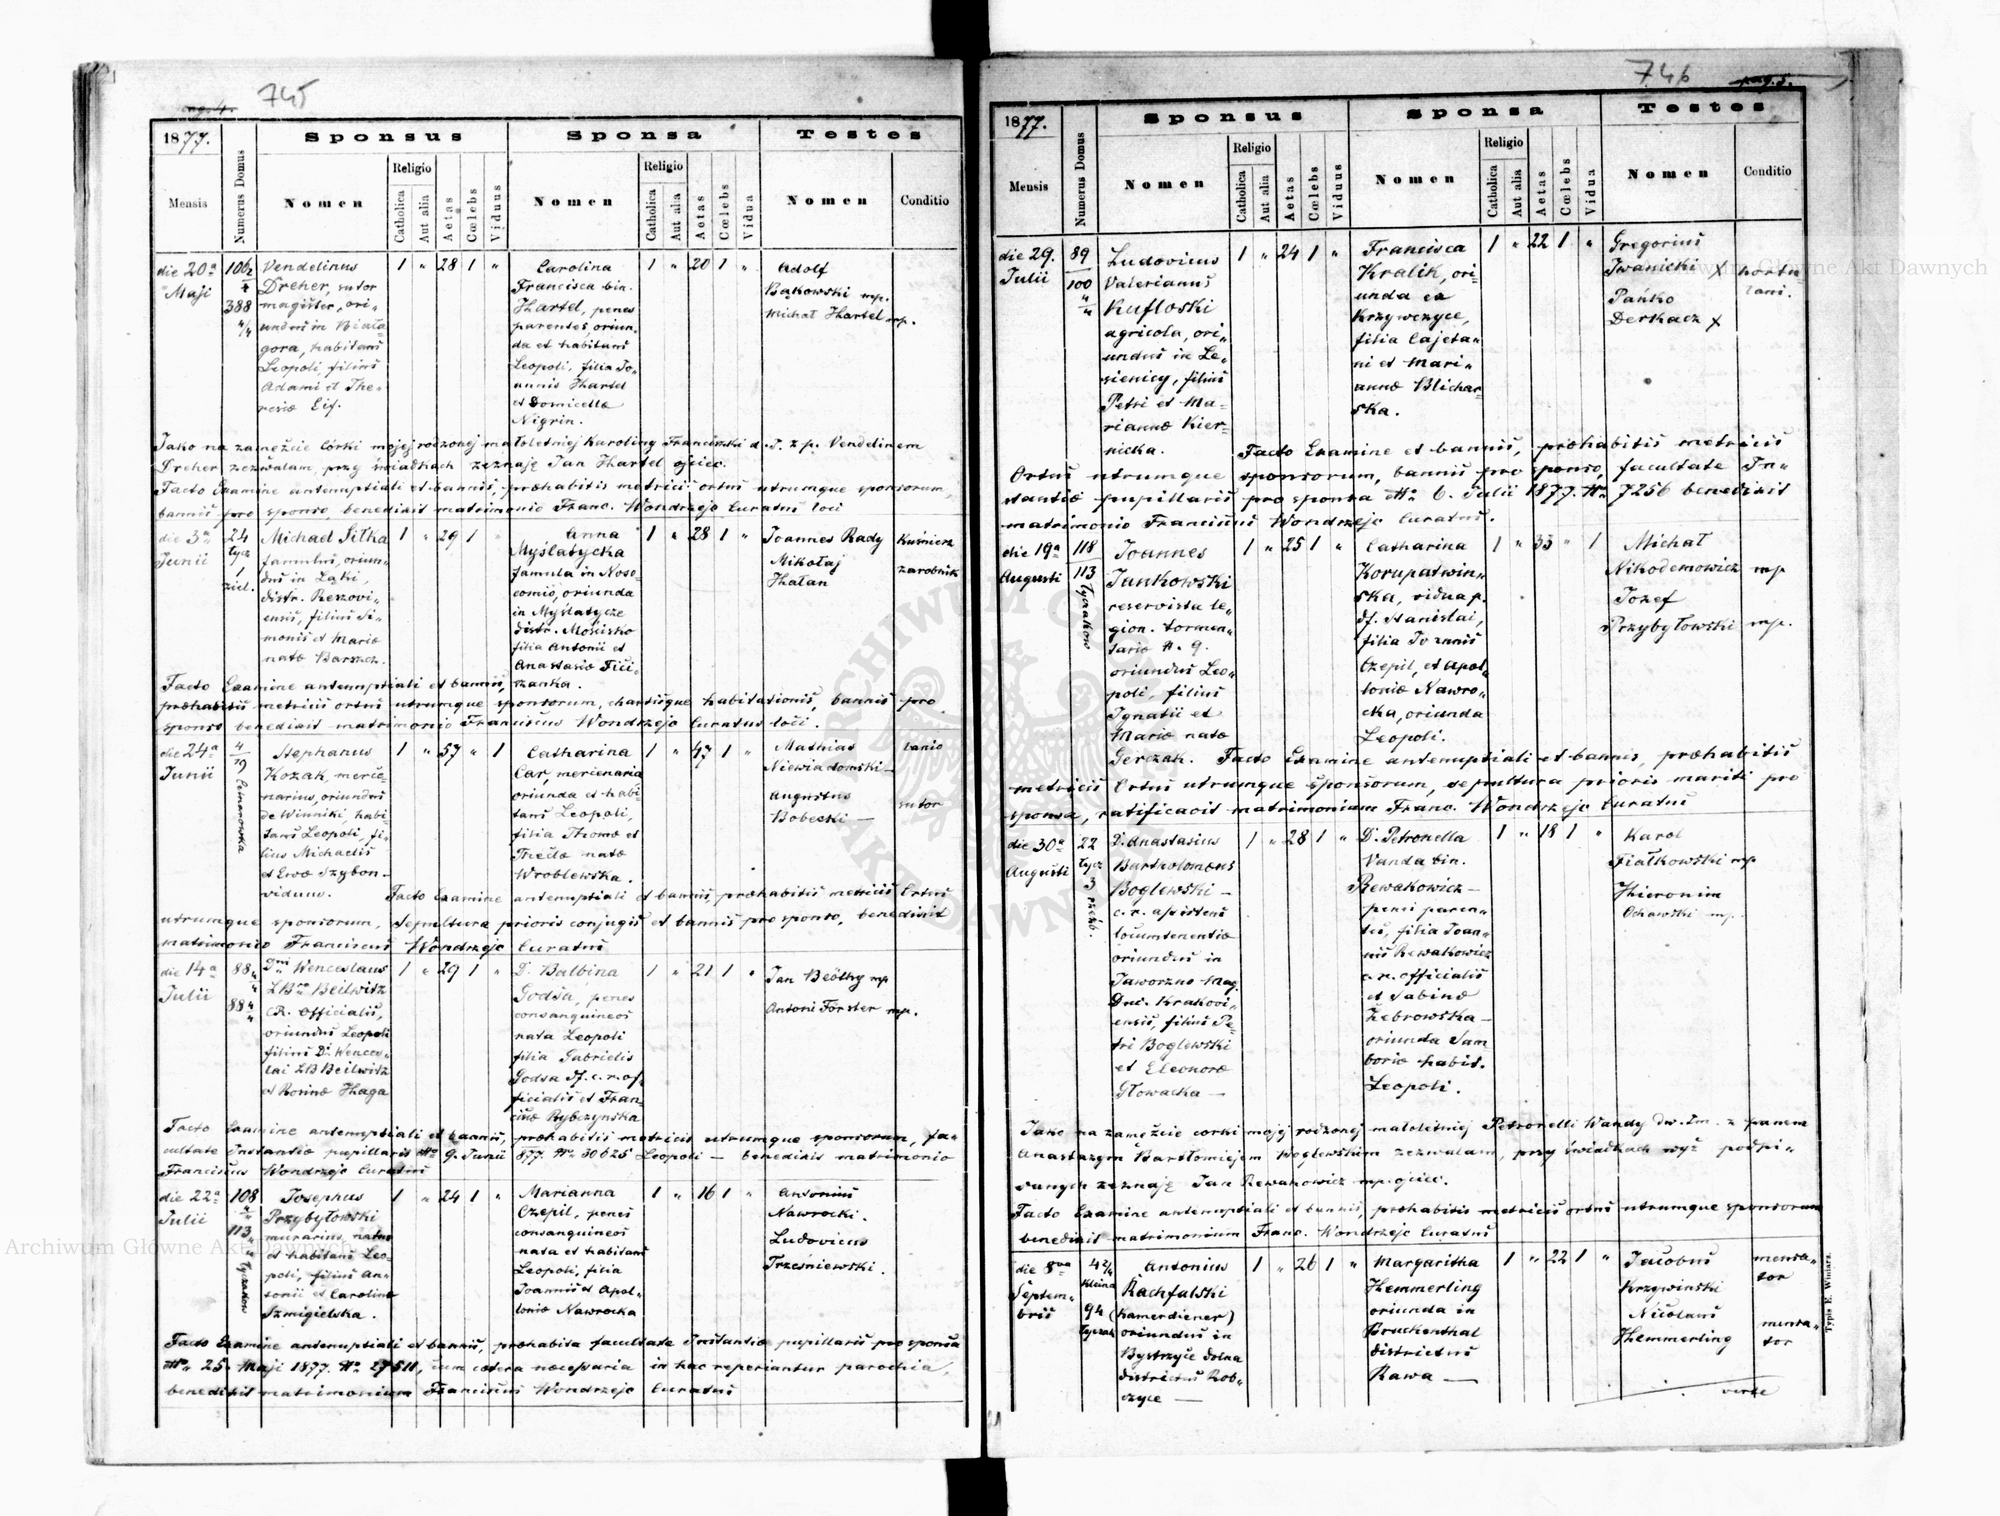 745
pag. 4.
1877.
Mensis
Numerus Domus
Sponsus
Nomen
Religio
Catholica
Aut alia
Aetas
Cœlebs
Viduus
Sponsa
Nomen
Religio
Catholica
Aut alia
Aetas
Cœlebs
Vidua
Testes
Nomen
Conditio
die 20ª
Maji
388
4/4
Vendelinus
Dreher, sutor
magister, ori„
undus in Biała„
gora, habitans
Leopoli, filius
Adami et The„
resiæ Eif.
1 „ 28 1 „
Carolina
Francisca bin.
Hartel, penes
parentes, oriun„
da et habitans
Leopoli, filia Jo„
annis Hartel
et Domicellæ
Nigrin.
1 „ 20 1 „
Adolf
Bąkowski mp.
Michał Hartel mp.
Jako na zamęźcie Córki mojej rodzonej małoletniej Karoliny Franciszki d. J. z p. Vendelinem
Dreher zezwalam, przy świadkach zeznaję Jan Hartel ojciec.
Facto Examine antenuptiali et bannis, præhabitis metricis ortus utrumque sponsorum,
bannis pro sponso, benedixit matrimonio Franc. Wondrzejc Curatus loci
die 3ª
Junii
24
tycz
1
ziel.
Michael Sitka
famulus, oriun„
dus in Łąki,
distr. Reszovi„
ensis, filius Si„
monis et Mariæ
natæ Barszcz.
1 „ 29 1 „
Anna
Myślatycka
famula in Noso„
comio, oriunda
in Myślatycze
distr. Mościsko
filia Antonii et
Anastasiæ Fici„
szanka.
1 „ 28 1 „
Joannes Rady
Mikołaj
Hałan
Kuśnierz
zarobnik
Facto Examine antenuptiali et bannis,
præhabitis metricis ortus utrumque sponsorum, chartisque habitationis, bannis pro
sponso benedixit matrimonio Franciscus Wondrzejc Curatus loci.
die 24ª
Junii
4
19
Stephanus
Kozak, merce„
narius, oriundus
de Winniki, habi„
tans Leopoli, fi„
lius Michaelis
et Evæ Szybon„
viduus.
1 „ 57 „ 1
Catharina
Car, mercenaria
oriunda et habi„
tans Leopoli,
filia Thomæ et
Theclæ natæ
Wroblewska.
1 „ 47 1 „
Mathias
Niewiadomski —
Augustus
Bobecki —
lanio
sutor
Facto Examine antenuptiali et bannis, præhabitis metricis Ortus
utrumque sponsorum, Sepultura prioris conjugis et bannis pro sponso, benedixit
matrimonio Franciscus Wondrzejc Curatus
die 14ª
Julii
88
4
88 4/4
Dnus Wenceslaus
L Bar Beilwitz
c.R. Officialis,
oriundus Leopoli
filius D. Wences„
lai L B Beilwitz
et Rosinæ Haga
1 „ 29 1 „
D. Balbina
Godsa, penes
consanguineos
nata Leopoli
filia Gabrielis
Godsa Pf. c. r. of„
ficialis et Fran„
ciscæ Rybczyńska
1 „ 21 1 „
Jan Beöthy mp
Antoni Förster mp.
Facto Examine antenuptiali et bannis, præhabitis metricis utrumque sponsorum, fa„
cultate Instantiæ pupillaris ddto 9. Junii 877. No 30625 Leopoli — benedixit matrimonio
Franciscus Wondrzejc Curatus
die 22ª
Julii
108
4/4
113
4
Łyczakow
Josephus
Przybyłowski
murarius, natus
et habitans Leo„
poli, filius An„
tonii et Carolinæ
Szmigielska.
1 „ 24 1 „
Marianna
Czepil, penes
consanguineos
nata et habitans
Leopoli, filia
Joannis et Apol„
loniæ Nawrocka
1 „ 16 1 „
Antonius
Nawrocki.
Ludovicus
Trześniewski.
Facto Examine antenuptiali et bannis, præhabita facultate Instantiæ pupillaris pro sponsa
ddto 25. Maji 1877. No 27511, cum cætera necessaria in hac reperiantur parochia,
benedixit matrimonium Franciscus Wondrzejc Curatus
746
pag. 5.
1877.
Mensis
Numerus Domus
Sponsus
Nomen
Religio
Catholica
Aut alia
Aetas
Cœlebs
Viduus
Sponsa
Nomen
Religio
Catholica
Aut alia
Aetas
Cœlebs
Vidua
Testes
Nomen
Conditio
die 29.
Julii
89
100
4/4
Ludovicus
Valerianus
Kufloski
agricola, ori„
undus in Le„
sienicy, filius
Petri et Ma„
riannæ Kier„
nicka.
1 „ 24 1 „
Francisca
Kralik, ori„
unda ex
Krzywczyce,
filia Cajeta„
ni et Mari„
annæ Blichar„
ska.
1 „ 22 1 „
Gregorius
Iwanicki x
Pańko
Derkacz x
hortu„
lani.
Facto Examine et bannis, præhabitis metricis
Ortus utrumque sponsorum, bannis pro sponso, facultate In„
stantiæ pupillaris pro sponsa ddto 6. Julii 1877. No 7256 benedixit
matrimonio Franciscus Wondrzejc Curatus.
die 19ª
Augusti
118
113
Łyczakow
Joannes
Jankowski
reservista le„
gion. tormen„
tariæ N. 9.
oriundus Leo„
poli, filius
Ignatii et
Mariæ natæ
Gerczak.
1 „ 25 1 „
Catharina
Korupatwin„
ska, vidua p.
df. Stanislai,
filia Joannis
Czepil, et Apol„
loniæ Nawro„
cka, oriunda
Leopoli.
1 „ 33 „ 1
Michał
Nikodemowicz mp
Jozef
Przybyłowski mp.
Facto Examine antenuptiali et bannis, præhabitis
metricis Ortus utrumque sponsorum, sepultura prioris mariti pro
sponsa, ratificavit matrimonium Franc. Wondrzejc Curatus
die 30ª
Augusti
22
Łycz
3
D. Anastasius
Bartholomæus
Boglewski —
c. r. assistens
locumtenentiæ
oriundus in
Jaworzno Mag.
Duc. Krakovi„
ensis, filius Pe„
tri Boglewski
et Eleonoræ
Głowacka —
1 „ 28 1 „
D. Petronella
Vanda bin.
Rewakowicz —
penes paren„
tes, filia Joan„
nis Rewakowicz
c. r. officialis
et Sabinæ
Zebrowska —
oriunda Sam„
boriæ habit.
Leopoli.
1 „ 18 1 „
Karol
Fiałkowski mp
Hieronim
Ochawski mp.
Jako na zamęźcie corki mojej rodzonej małoletniej Petronelli Wandy dw. Im. z panem
Anastazym Bartłomiejem Boglewskim zezwalam, przy świadkach wyż podpi„
sanych zeznaję Jan Rewakowicz mp. ojciec.
Facto Examine antenuptiali et bannis, præhabitis metricis ortus utrumque sponsorum
benedixit matrimonium Franc. Wondrzejc Curatus
die 8va
Septem„
bris
4 2/4
Kleina
94
Łyczak
Antonius
Rachfalski
(Kamerdiener)
oriundus in
Bystrzyce dolna
districtus Rob„
czyce —
1 „ 26 1 „
Margaritha
Hemmerling
oriunda in
Bruckenthal
districtus
Rawa —
1 „ 22 1 „
Jacobus
Krzywinski
Nicolaus
Hemmerling
mensa„
tor
mensa„
tor
verte
Typis E. Winiarz.
Archiwum Główne Akt Dawnych
Archiwum Główne Akt Dawnych
ARCHIWUM GŁÓWNE AKT DAWNYCH